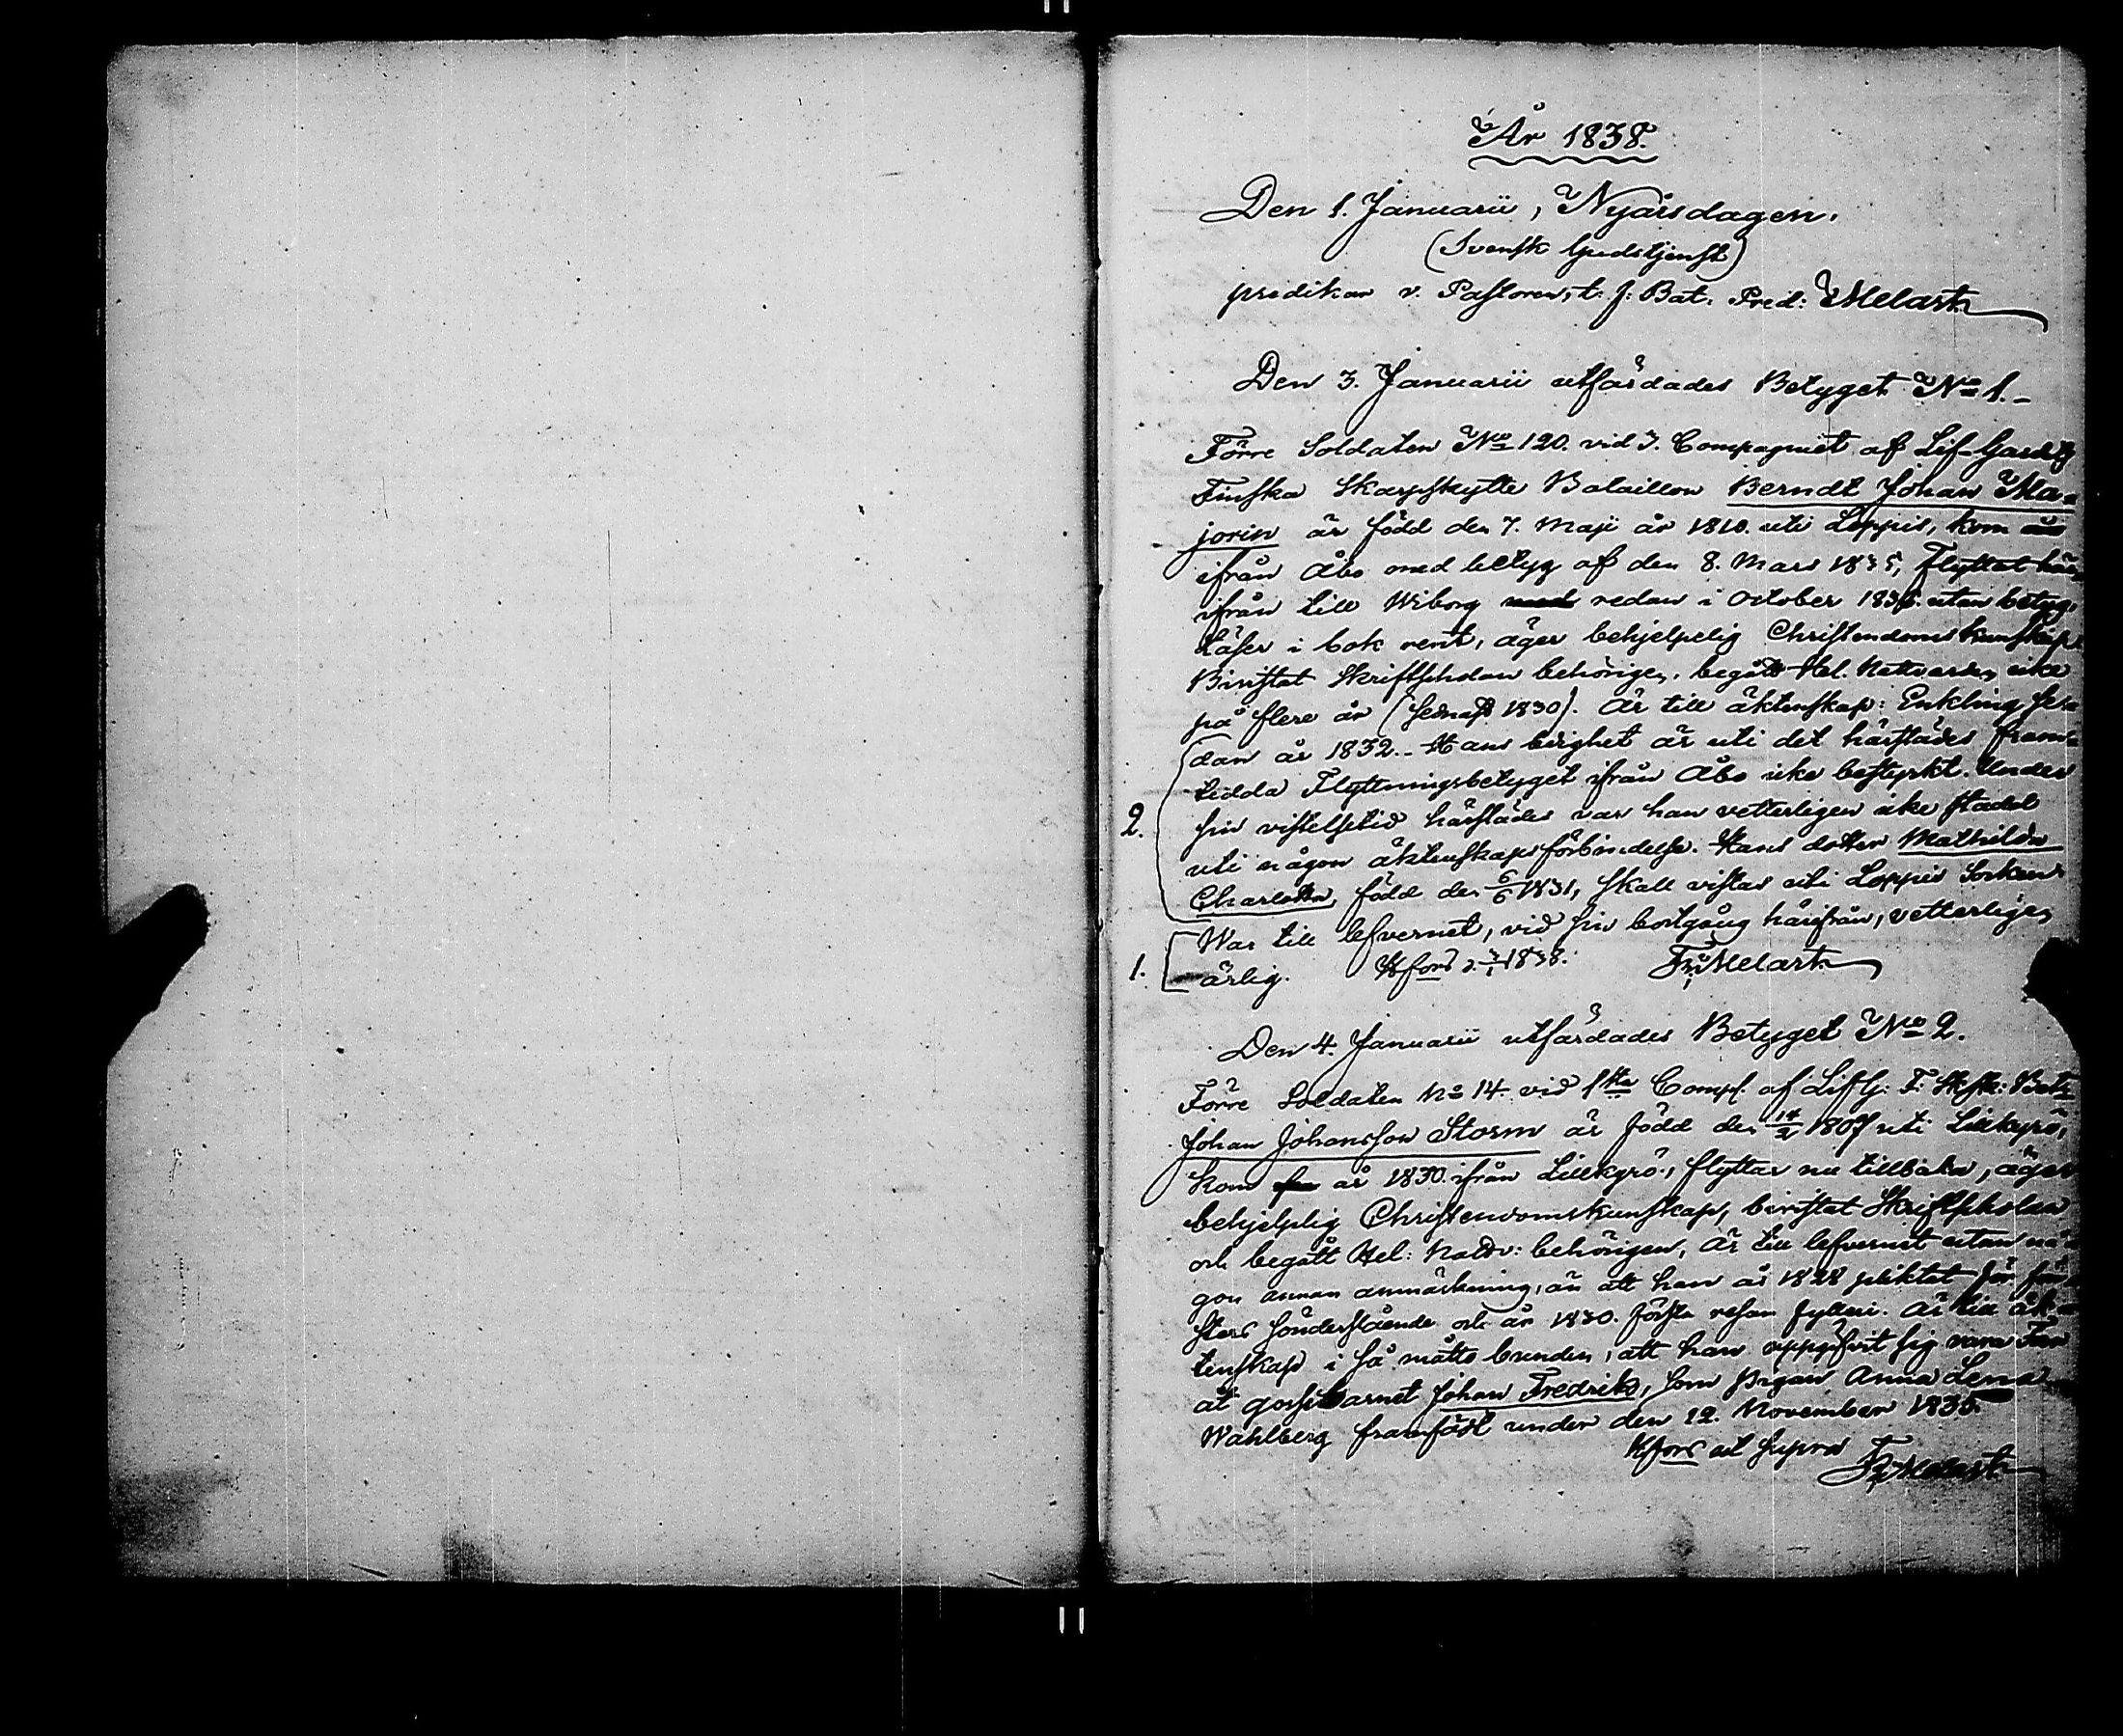 År 1838.
Den 1. Januarii, Nyårsdagen.
(Svensk Gudstjenst)
predikar v. Pastoren, t. f. Bat. Pred: Melart
Den 3. Januarii utfärdades Betyget No 1.-
Förre Soldaten No 120. vid 3. Compagniet af Lif-Gardets
Finska Skarpskytte Bataillon Berndt Johan Ma-
jorin är född den 7. Maji år 1810. uti Loppis, kom
ifrån Åbo med betyg af den 8. Mars 1835, Flyttat här
ifrån till Wiborg redan i October 1836. utan betyg.
Läser i bok rent, äger behjelpelig Christendomskunskap.
Bivistat Skriftskolan behörigen, begått Hel. Nattvarden icke
på flere år (sednast 1830). Är till äktenskap: Enkling se-
dan år 1832.- Hans ledighet är uti det härstädes fram-
tedda Flyttningsbetyget ifrån Åbo icke bestyrkt. Under
2. sin vistelsetid härstädes var han vetterligen icke stadd
uti någon äktenskapsförbindelse. Hans dotter Mathilda
Charlotta, född den 6/6 1831, skall vistas uti Loppis Socken
War till lefvernet, vid sin bortgång härifrån, vetterligen
1. ärlig. Hfors d. 3/1 1838. Fr: Melart
Den 4. Januarii utfärdades Betyget No 2.
Förre Soldaten No 14. vid 1sta Comp. af Lif G: F: Sk.sk: Bat:
Johan Johansson Storm är född den 14/2 1807 uti Lillkyrö,
kom år 1830. ifrån Lillkyrö, flyttar nu tillbaka, äger
behjelplig Christendomskunskap, bivistat Skriftskolan
och begått Hel: Nattv: behörigen, Är till lefvernet utan nå-
gon annan anmärkning, än att han år 1828 pliktat för fön-
sters sönderslående och år 1830. första resan fylleri. Är till äk-
tenskap i så måtto bunden, att han uppgifvit sig vara Far
åt gossebarnet Johan Fredrik, som pigan Anna Lena
Wahlberg framfödt under den 12. November 1835.
Hfors ut supra Fr: Melart